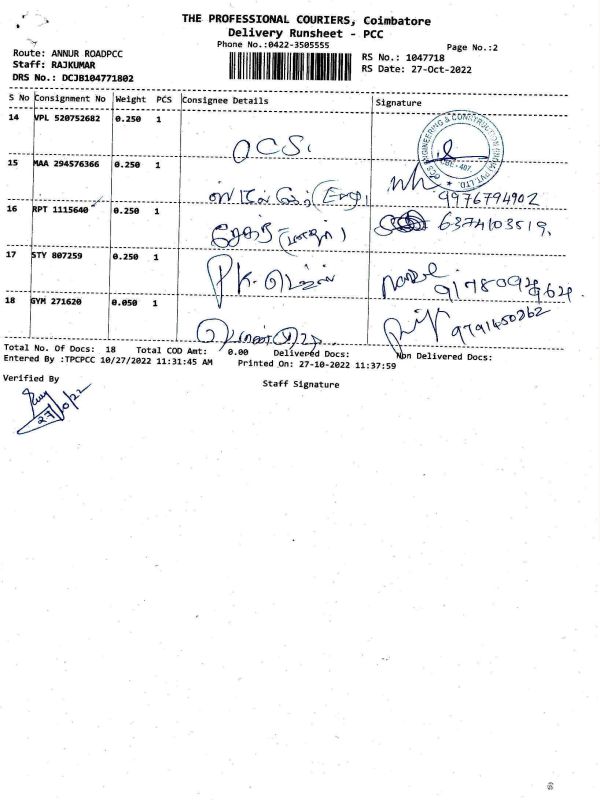 THE PROFESSIONAL COURIERS, Coimbatore
Delivery Runsheet - PCC
Phone No.:0422-3505555
Page No.:2
Route: ANNUR ROADPCC
Staff: RAJKUMAR
DRS No.: DCJB104771802
RS No.: 1047718
RS Date: 27-Oct-2022
S No Consignment No Weight PCS Consignee Details Signature
14 VPL 520752682 0.250 1 OCS.
15 MAA 294576366 0.250 1
9976794902
16 RPT 1115640 0.250 1
6374103519.
17 STY 807259 0.250 1 P.K.
18 GYM 271620 0.050 1
9791450262
Total No. Of Docs: 18 Total COD Amt: 0.00 Delivered Docs: Non Delivered Docs:
Entered By :TPCPCC 10/27/2022 11:31:45 AM Printed On: 27-10-2022 11:37:59
Verified By
Staff Signature
27/10/22